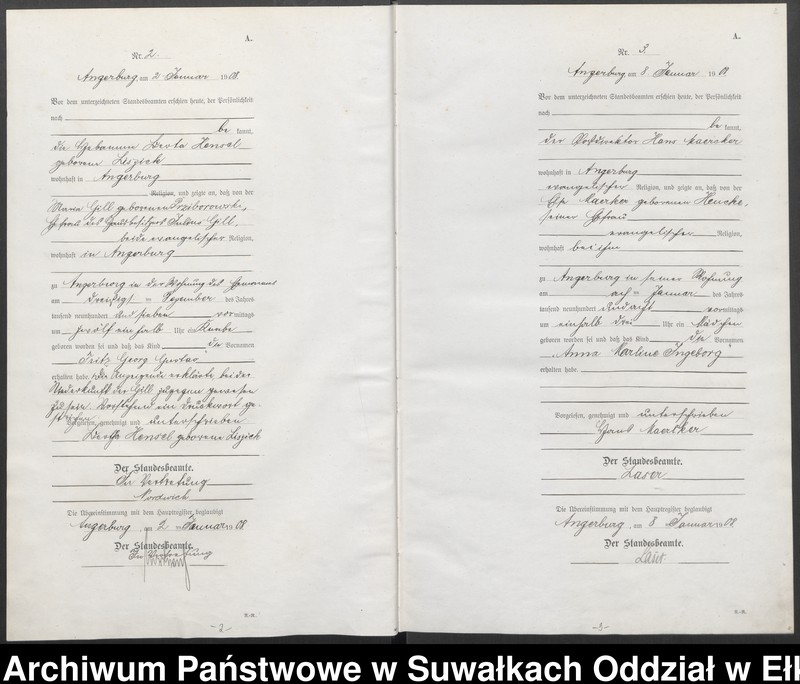 A.
Nr. 2.
Angerburg am 2 Januar 1908
Vor dem unterzeichneten Standesbeamten erschien heute, der Persönlichkeit
nach
be kannt,
die Hebamme Berta Hensel
geborene Leszich
wohnhaft in Angerburg
Religion, und zeigte an, daß von der
Maria Gill geborenen Prziborowski,
Ehefrau des Hausbesitzers Julius Gill,
beide evangelischer Religion,
wohnhaft in Angerburg
zu Angerburg in der Wohnung des Ehemanns
am dreißigsten Dezember des Jahres
tausend neunhundert und sieben vormittags
um zwölf einhalb Uhr ein Knabe
geboren worden sei und daß das Kind die Vornamen
Fritz Georg Gustav
erhalten habe. Die Anzeigende erklärte, bei der
Niederkunft der Gill zugegen gewesen
zu sein. Vorstehend ein Druckwort ge-
strichen.
Vorgelesen, genehmigt und unterschrieben
Bertha Hensel geborene Leszich
Der Standesbeamte.
In Vertretung
Die Übereinstimmung mit dem Hauptregister beglaubigt
Angerburg, am 2 Januar 1908
Der Standesbeamte.
In Vertretung
-2-
A.
Nr. 3.
Angerburg am 8 Januar 1908
Vor dem unterzeichneten Standesbeamten erschien heute, der Persönlichkeit
nach
be kannt,
der Postdirektor Hans Maercker
wohnhaft in Angerburg
evangelischer Religion, und zeigte an, daß von der
Maercker geborenen Hencke,
seiner Ehefrau
evangelischer Religion,
wohnhaft bei ihm
zu Angerburg in seiner Wohnung
am achten Januar des Jahres
tausend neunhundert und acht vormittags
um einhalb drei Uhr ein Mädchen
geboren worden sei und daß das Kind die Vornamen
Anna Ingeborg
erhalten habe
Vorgelesen, genehmigt und unterschrieben
Hans Maercker
Der Standesbeamte.
Laser
Die Übereinstimmung mit dem Hauptregister beglaubigt
Angerburg, am 8 Januar 1908
Der Standesbeamte.
Laser
-3-
Archiwum Państwowe w Suwałkach Oddział w Ełk